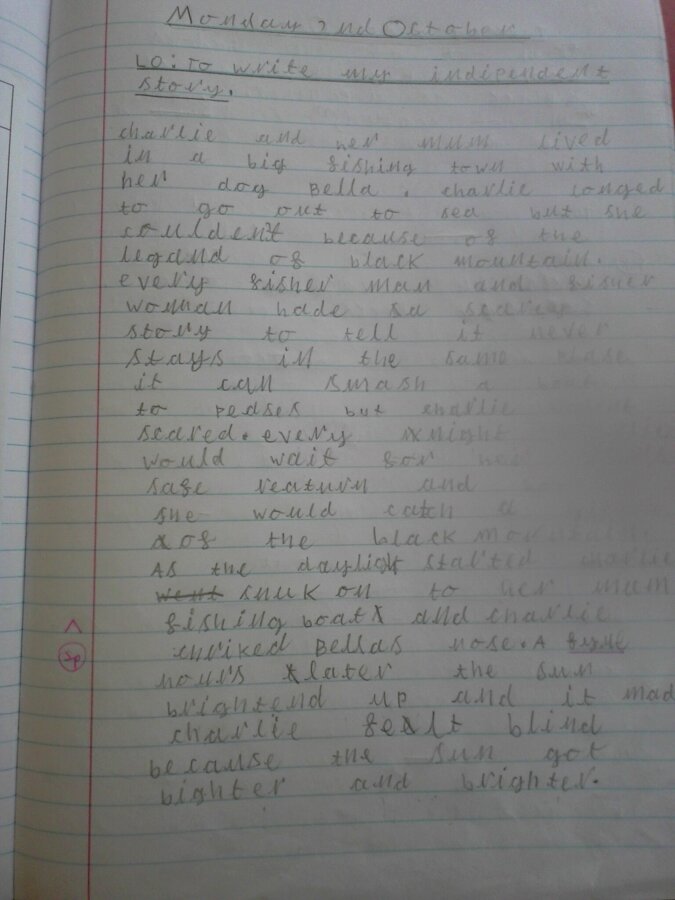 Monday 2nd October
LO: To write my independent
story.
charlie and her mum lived
in a big fishing town with
her dog Bella. charlie longed
to go out to sea but she
couldent because of the
legand of black mountain.
every fisher man and fisher
woman hade sa scarey
story to tell it never
stays in the same plase
it can smash a boat
to peases but charlie
scared. every knight
would wait for her
safe reaturn and
she would catch a
of the black mountain.
As the daylight started charlie
went snuk on to her mam
fishing boat and charlie
Bellas nose. A fyue
hours later the sun
brightend up and it mad
charlie fealt blind
because the sun got
bighter and brighter.
^
sp